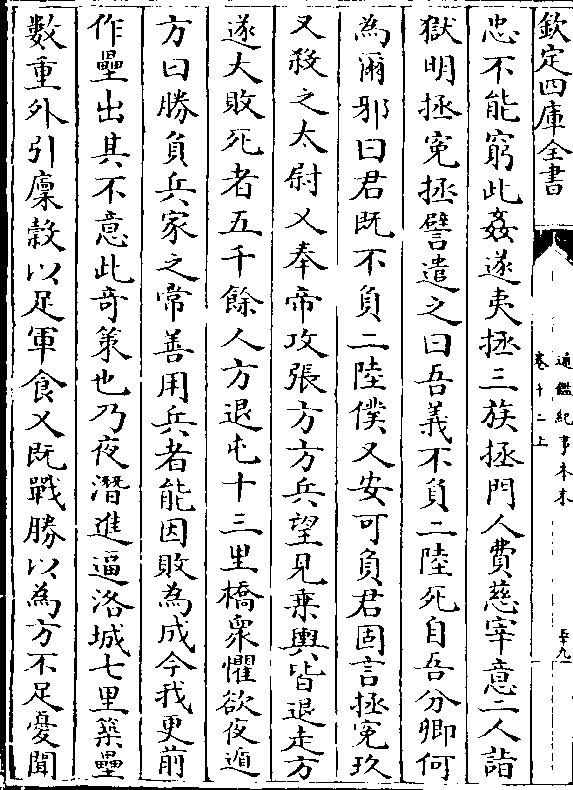 欽定四庫全書
通鑑紀事本末
卷十二上
忠不能窮此姦遂夷拯三族拯門人費慈宰意二人詣
獄明拯寃拯譬遣之曰吾義不負二陸死自吾分卿何
為爾邪曰君既不負二陸僕又安可負君固言拯寃玖
又殺之太尉乂奉帝攻張方方兵望見乗輿皆退走方
遂大敗死者五千餘人方退屯十三里橋衆懼欲夜遁
方曰勝負兵家之常善用兵者能因敗為成今我更前
作壘出其不意此奇策也乃夜潛進逼洛城七里築壘
數重外引廩榖以足軍食乂既戰勝以為方不足憂聞